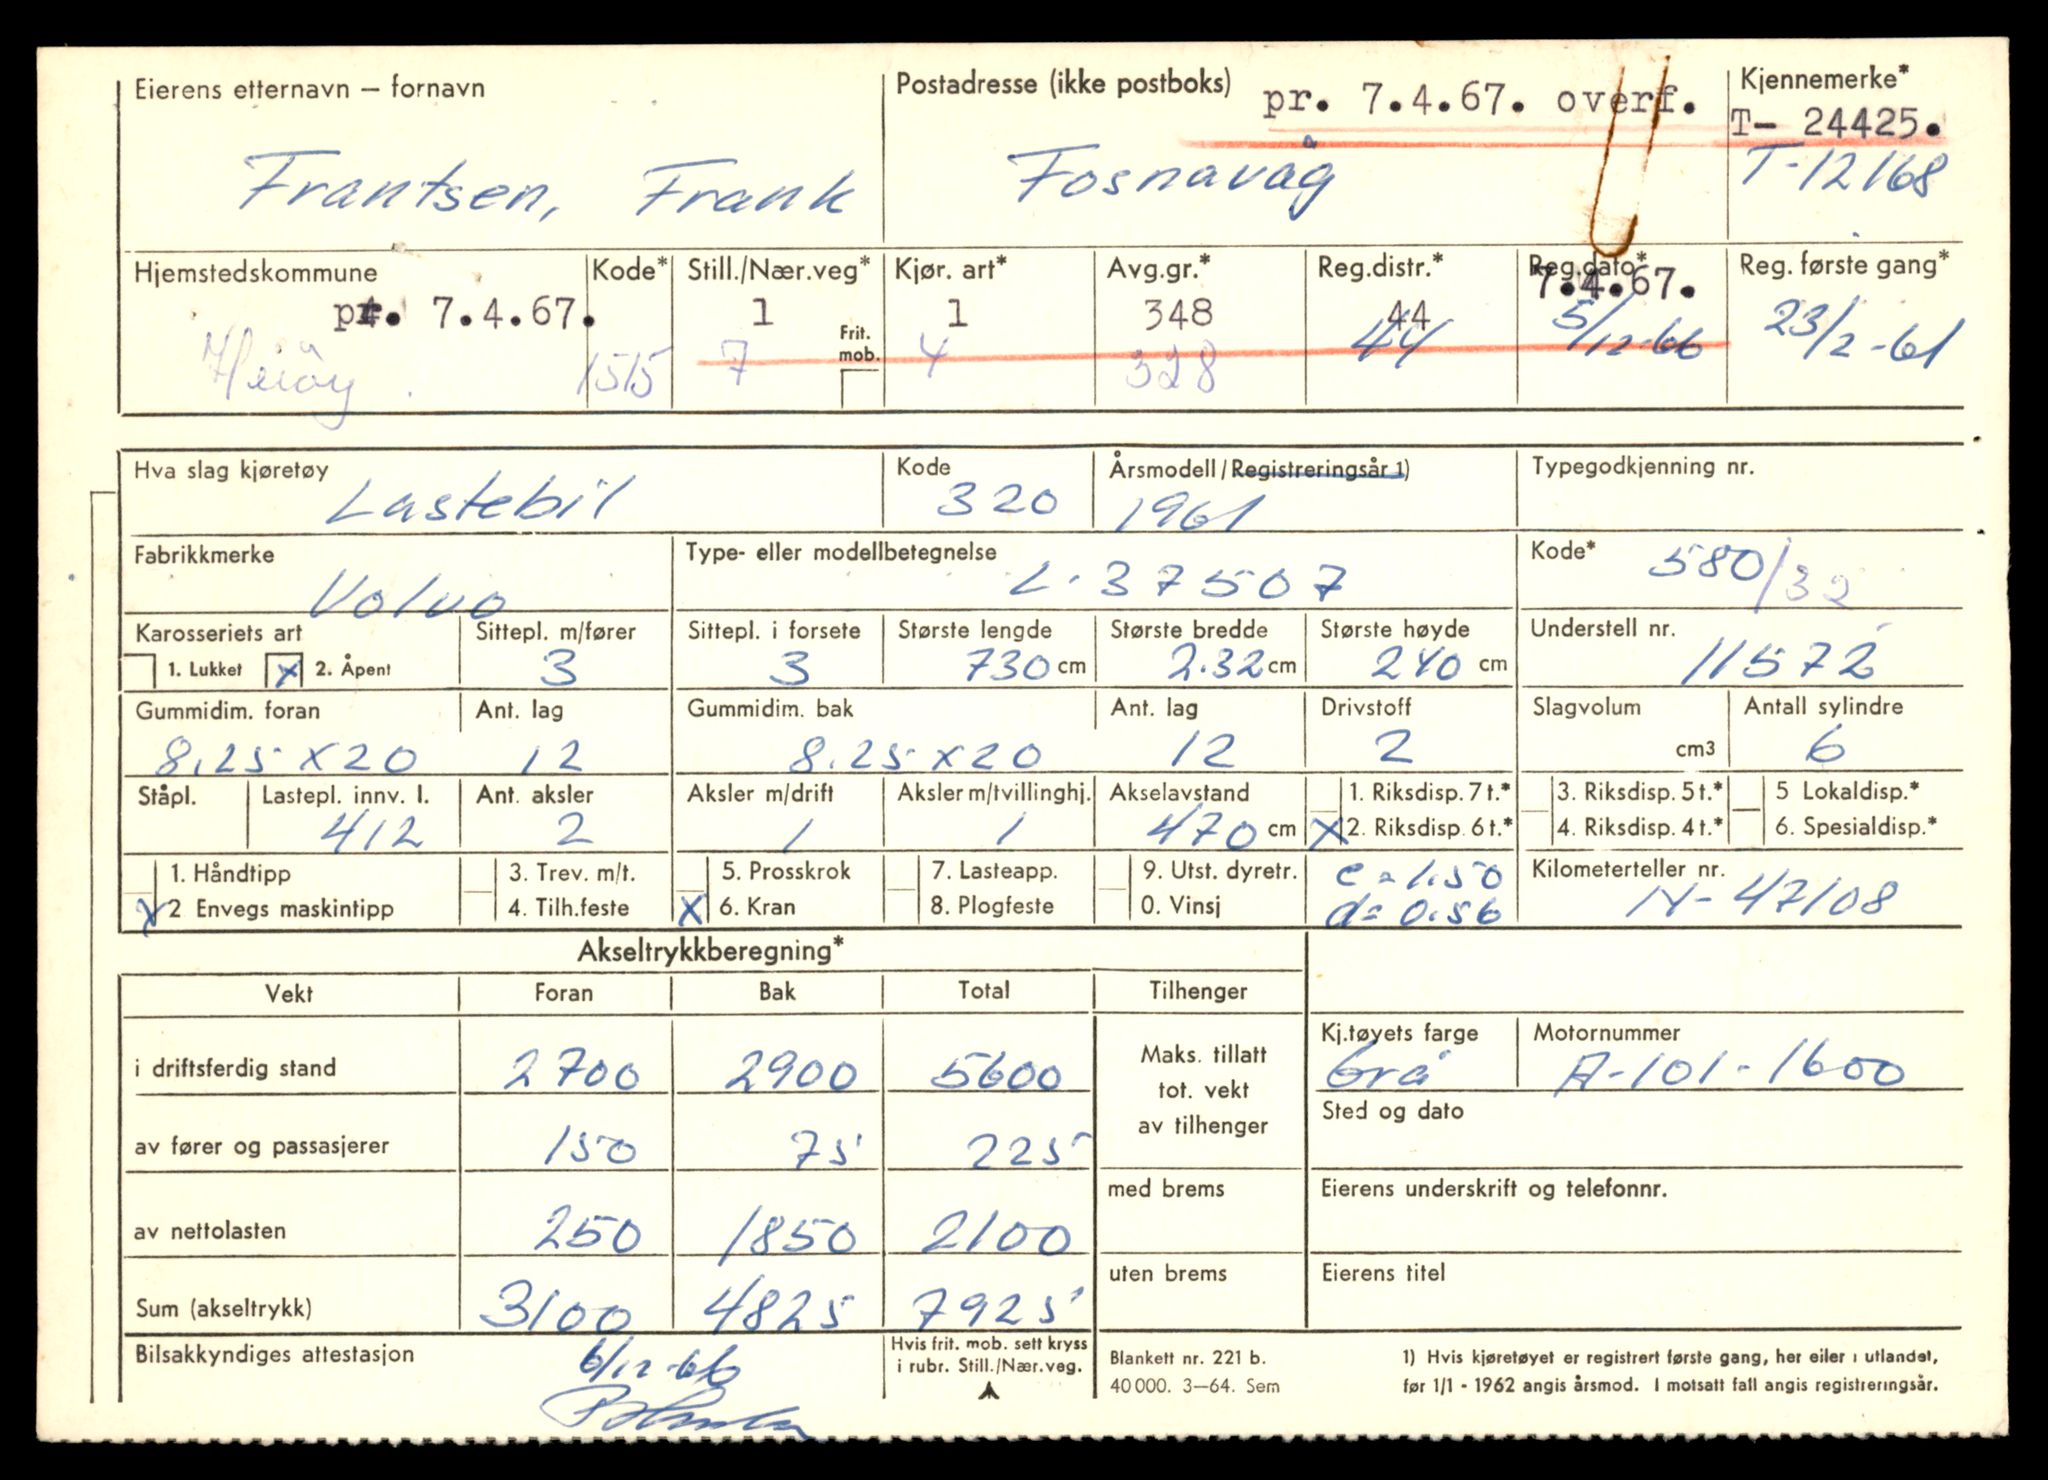 Eierens etternavn – fornavn
Frantsen, Frank
Postadresse (ikke postboks)
pr. 7.4.67. overf.
Fosnavåg
Kjennemerke*
T- 24425.
T-12168
Hjemstedskommune
pr. 7.4.67.
Herøy.
Kode*
1515
Still./Nær.veg*
1
7
Frit. mob.
Kjør. art*
1
4
Avg.gr.*
348
328
Reg.distr.*
44
44
Reg.dato*
7.4.67.
5/12-66
Reg. første gang*
23/2-61
Hva slag kjøretøy
Lastebil
Kode
320
Årsmodell/Registreringsår 1)
1961
Typegodkjenning nr.
Fabrikkmerke
Volvo
Type- eller modellbetegnelse
L-37507
Kode*
580/32
Karosseriets art
1. Lukket x 2. Åpent
Sittepl. m/fører
3
Sittepl. i forsete
3
Største lengde
730 cm
Største bredde
2.32 cm
Største høyde
240 cm
Understell nr.
11572
Gummidim. foran
8.25 x 20
Ant. lag
12
Gummidim. bak
8.25 x 20
Ant. lag
12
Drivstoff
2
Slagvolum
cm3
Antall sylindre
6
Ståpl.
Lastepl. innv. l.
412
Ant. aksler
2
Aksler m/drift
1
Aksler m/tvillinghj.
1
Akselavstand
470 cm
1. Riksdisp. 7 t.*
x 2. Riksdisp. 6 t.*
3. Riksdisp. 5 t.*
4. Riksdisp. 4 t.*
5 Lokaldisp.*
6. Spesialdisp.*
1. Håndtipp
x 2 Envegs maskintipp
3. Trev. m/t.
4. Tilh.feste
5. Prosskrok
x 6. Kran
7. Lasteapp.
8. Plogfeste
9. Utst. dyretr.
0. Vinsj
c = 1.50
d = 0.56
Kilometerteller nr.
N-47108
Akseltrykkberegning*
Vekt Foran Bak Total Tilhenger
i driftsferdig stand 2700 2900 5600
av fører og passasjerer 150 75 225
av nettolasten 250 1850 2100
Sum (akseltrykk) 3100 4825 7925
Maks. tillatt
tot. vekt
av tilhenger
med brems
uten brems
Kj.tøyets farge
Grå
Motornummer
A-101-1600
Sted og dato
Eierens underskrift og telefonnr.
Eierens titel
Bilsakkyndiges attestasjon
6/12-66
Hvis frit. mob. sett kryss
i rubr. Still./Nær.veg.
Blankett nr. 221 b.
40 000. 3–64. Sem
1) Hvis kjøretøyet er registrert første gang, her eller i utlandet,
før 1/1 - 1962 angis årsmod. I motsatt fall angis registreringsår.